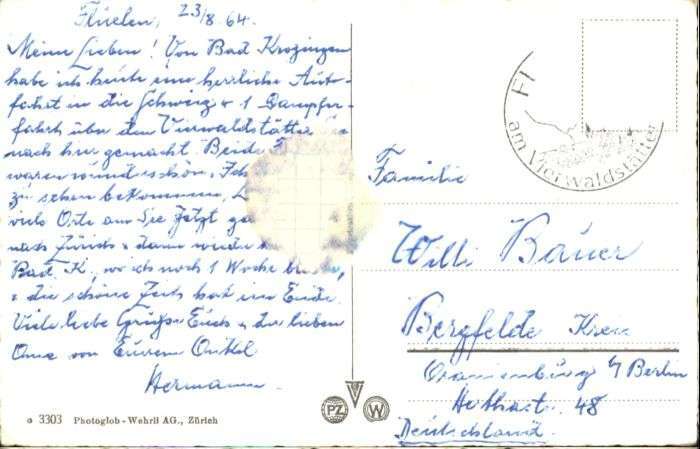 Flüelen, 23/8 64.
Meine Lieben! Von Bad Krozingen
habe ich heute eine herrliche Auto-
fahrt in die Schweiz + 1 Dampfer-
fahrt über den Vierwaldstätter
nach hier gemacht. Beide
waren wunderschön,
zu sehen bekommen,
viele Orte am See. Jetzt
nach Zürich & dann wieder
Bad K., wo ich noch 1 Woche
& die schöne Zeit hat ein Ende.
Viele liebe Grüße Euch & der lieben
Oma von Eurem Onkel
Hermann.
Familie
Willi Bauer
Bergfelde Kreis
Oranienburg b/ Berlin
48
Deutschland.
am Vierwaldstätter
3303 Photoglob-Wehrli AG., Zürich
PZ W